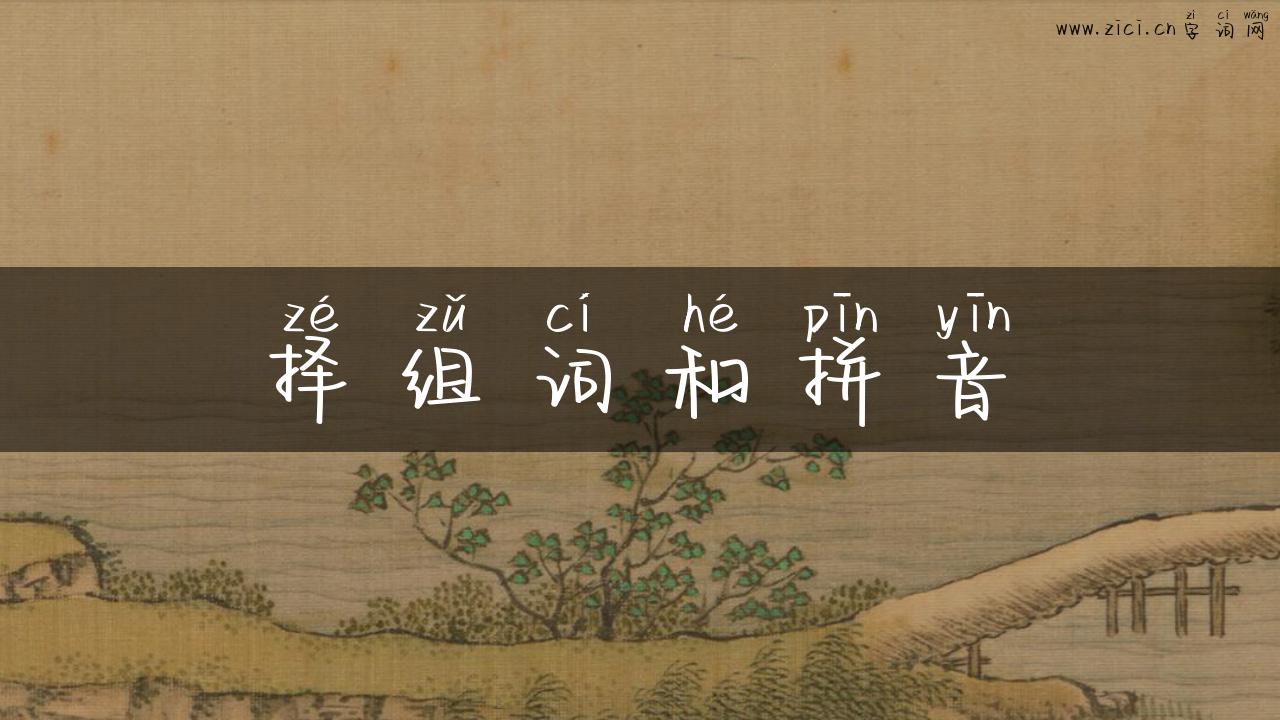 zì cí wǎng
www.zici.cn字词网
zé zǔ cí hé pīn yīn
择组词和拼音